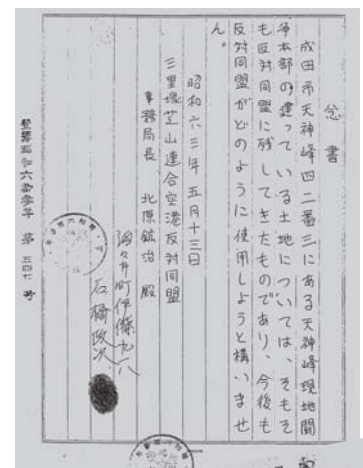 念書
成田市天神峰四二番三にある天神峰現地闘
争本部の建っている土地については、そもそ
も反対同盟に残してきたものであり、今後も
反対同盟がどのように使用しようと構いませ
ん。
昭和六三年五月十三日
三里塚芝山連合空港反対同盟
事務局長 北原鉱治 殿
石橋政次
昭和六拾参年 第 三四六 号